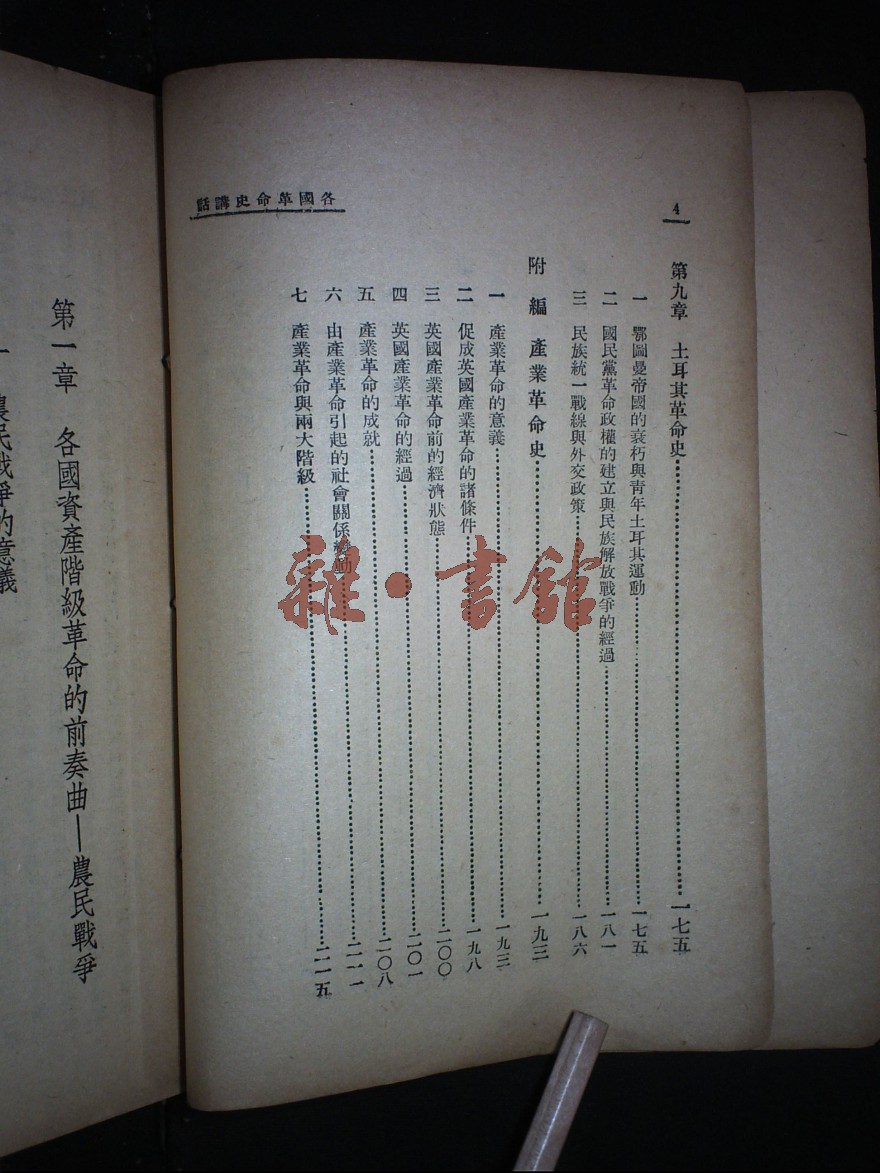 各國革命史講話
4
第九章 土耳其革命史……一七五
一 鄂圖曼帝國的衰朽與青年土耳其運動……一七五
二 國民黨革命政權的建立與民族解放戰爭的經過……一八一
三 民族統一戰線與外交政策……一八六
附編 產業革命史……一九三
一 產業革命的意義……一九三
二 促成英國產業革命的諸條件……一九八
三 英國產業革命前的經濟狀態……二〇〇
四 英國產業革命的經過……二〇一
五 產業革命的成就……二〇八
六 由產業革命引起的社會關係變動……二一一
七 產業革命與兩大階級……二一五
第一章 各國資產階級革命的前奏曲—農民戰爭
一 農民戰爭的意議
雜·書館